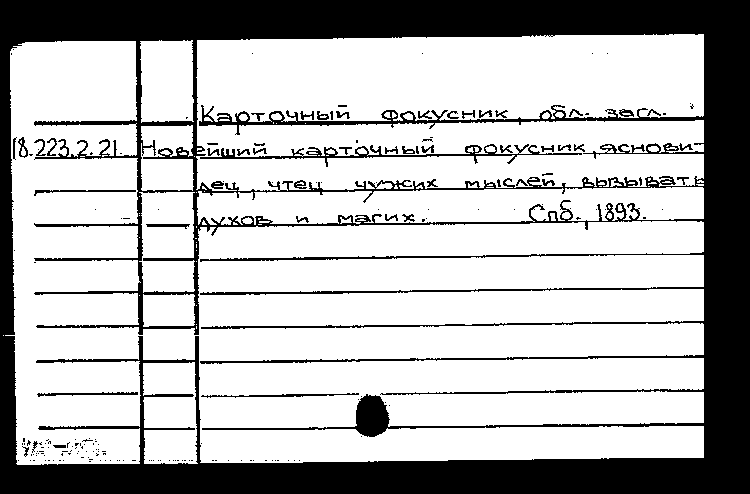 Карточный фокусник, обл. загл.
18.223.2.21. Новейший карточный фокусник, яснови-
дец, чтец чужих мыслей, вызывать
духов и магих. Спб., 1893.